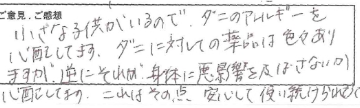 ご意見、ご感想
小さな子供がいるので、ダニのアレルギーを
心配してます。ダニに対しての薬品は色々あり
ますが、逆にそれが身体に悪影響を及ぼさないか
心配してます。これはその点 安心して使い続けられ